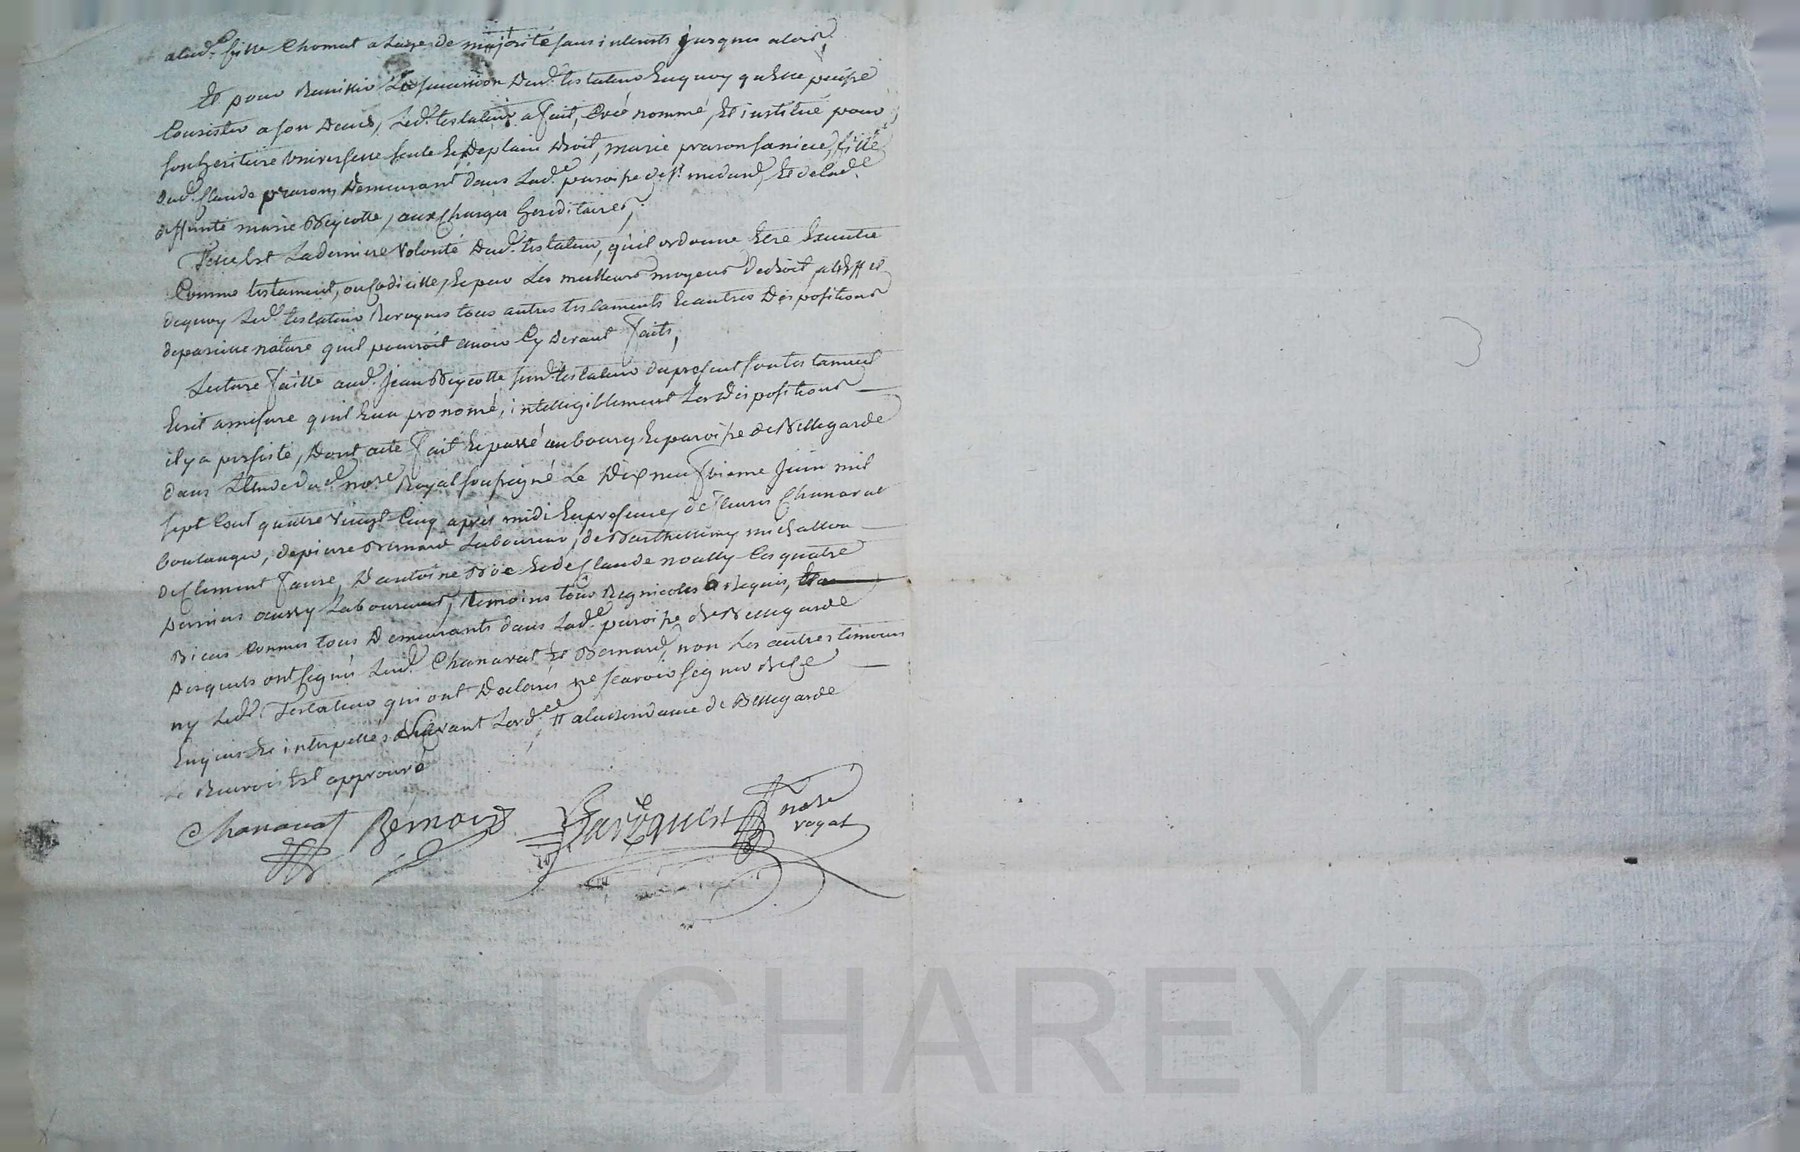 alad.e fille Chomat a Lage de majorité sans interests jusques alors,
Et pour Recuillir La sucession Dud. testateur Enquoy qu'Elle puisse
Consister a son Deceds, Led. testateur a fait, Créé nommé, Et institué pour
son heritiere universelle seule Et Deplain Droit, marie prason sa niece, fille
Dud. Claude prason, Demeurant dans Lad.e paroisse de st medard, Et delad.e
deffunte marie , aux Charges hereditaires;
Telle Est La derniere volonté Dud. testateur, qu'il ordonne Etre Executée
Comme testament, ou Codicille, Et par Les meilleurs moyens de droit, a Leffet
dequoy Led. testateur Revoque tous autres testaments Et autres Dispositions
de pareille nature quil pourroit avoir Cy devant faits,
Lecture faitte aud. Jean testateur du present son testament
Ecrit a mesure quil En a prononcé, intelligiblement Les dispositions
il y a persisté, Dont acte fait Et passé au bourg Et paroisse de Bellegarde
dans Létude dud. no.re Royal soussigné Le Dix neufvieme Juin mil
sept Cent quatre vingt Cinq après midi En presence de Chanavat
boulanger, de pierre Bernard Laboureur, de Barthellemy michallon
de Clement faure, D'antoine Et de Claude noally Les quatre
Derniers aussy Laboureurs, temoins tous Regnicoles Requis,
Bien Connus tous Demeurants dans Lad.e paroisse de Bellegarde
Desquels ont signé Led. Chanavat Et Bernard, non Les autres temoins
ny Led. Testateur qui ont Declaré ne scavoir signer de Ce
Enquis Et interpellés suivant Lord.ce // a la de Bellegarde
Le Renvoi Est approuvé
Chanavat Bernard no.re
royal
Pascal CHAREYRON